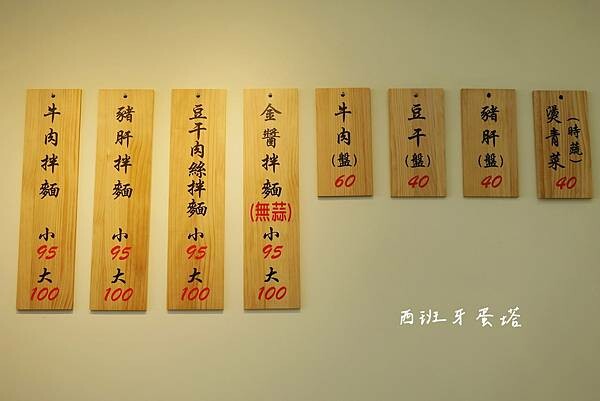 牛肉拌麵 小 95 大 100
豬肝拌麵 小 95 大 100
豆干肉絲拌麵 小 95 大 100
金醬拌麵(無蒜) 小 95 大 100
牛肉(盤) 60
豆干(盤) 40
豬肝(盤) 40
燙青菜(時蔬) 40
西班牙蛋塔